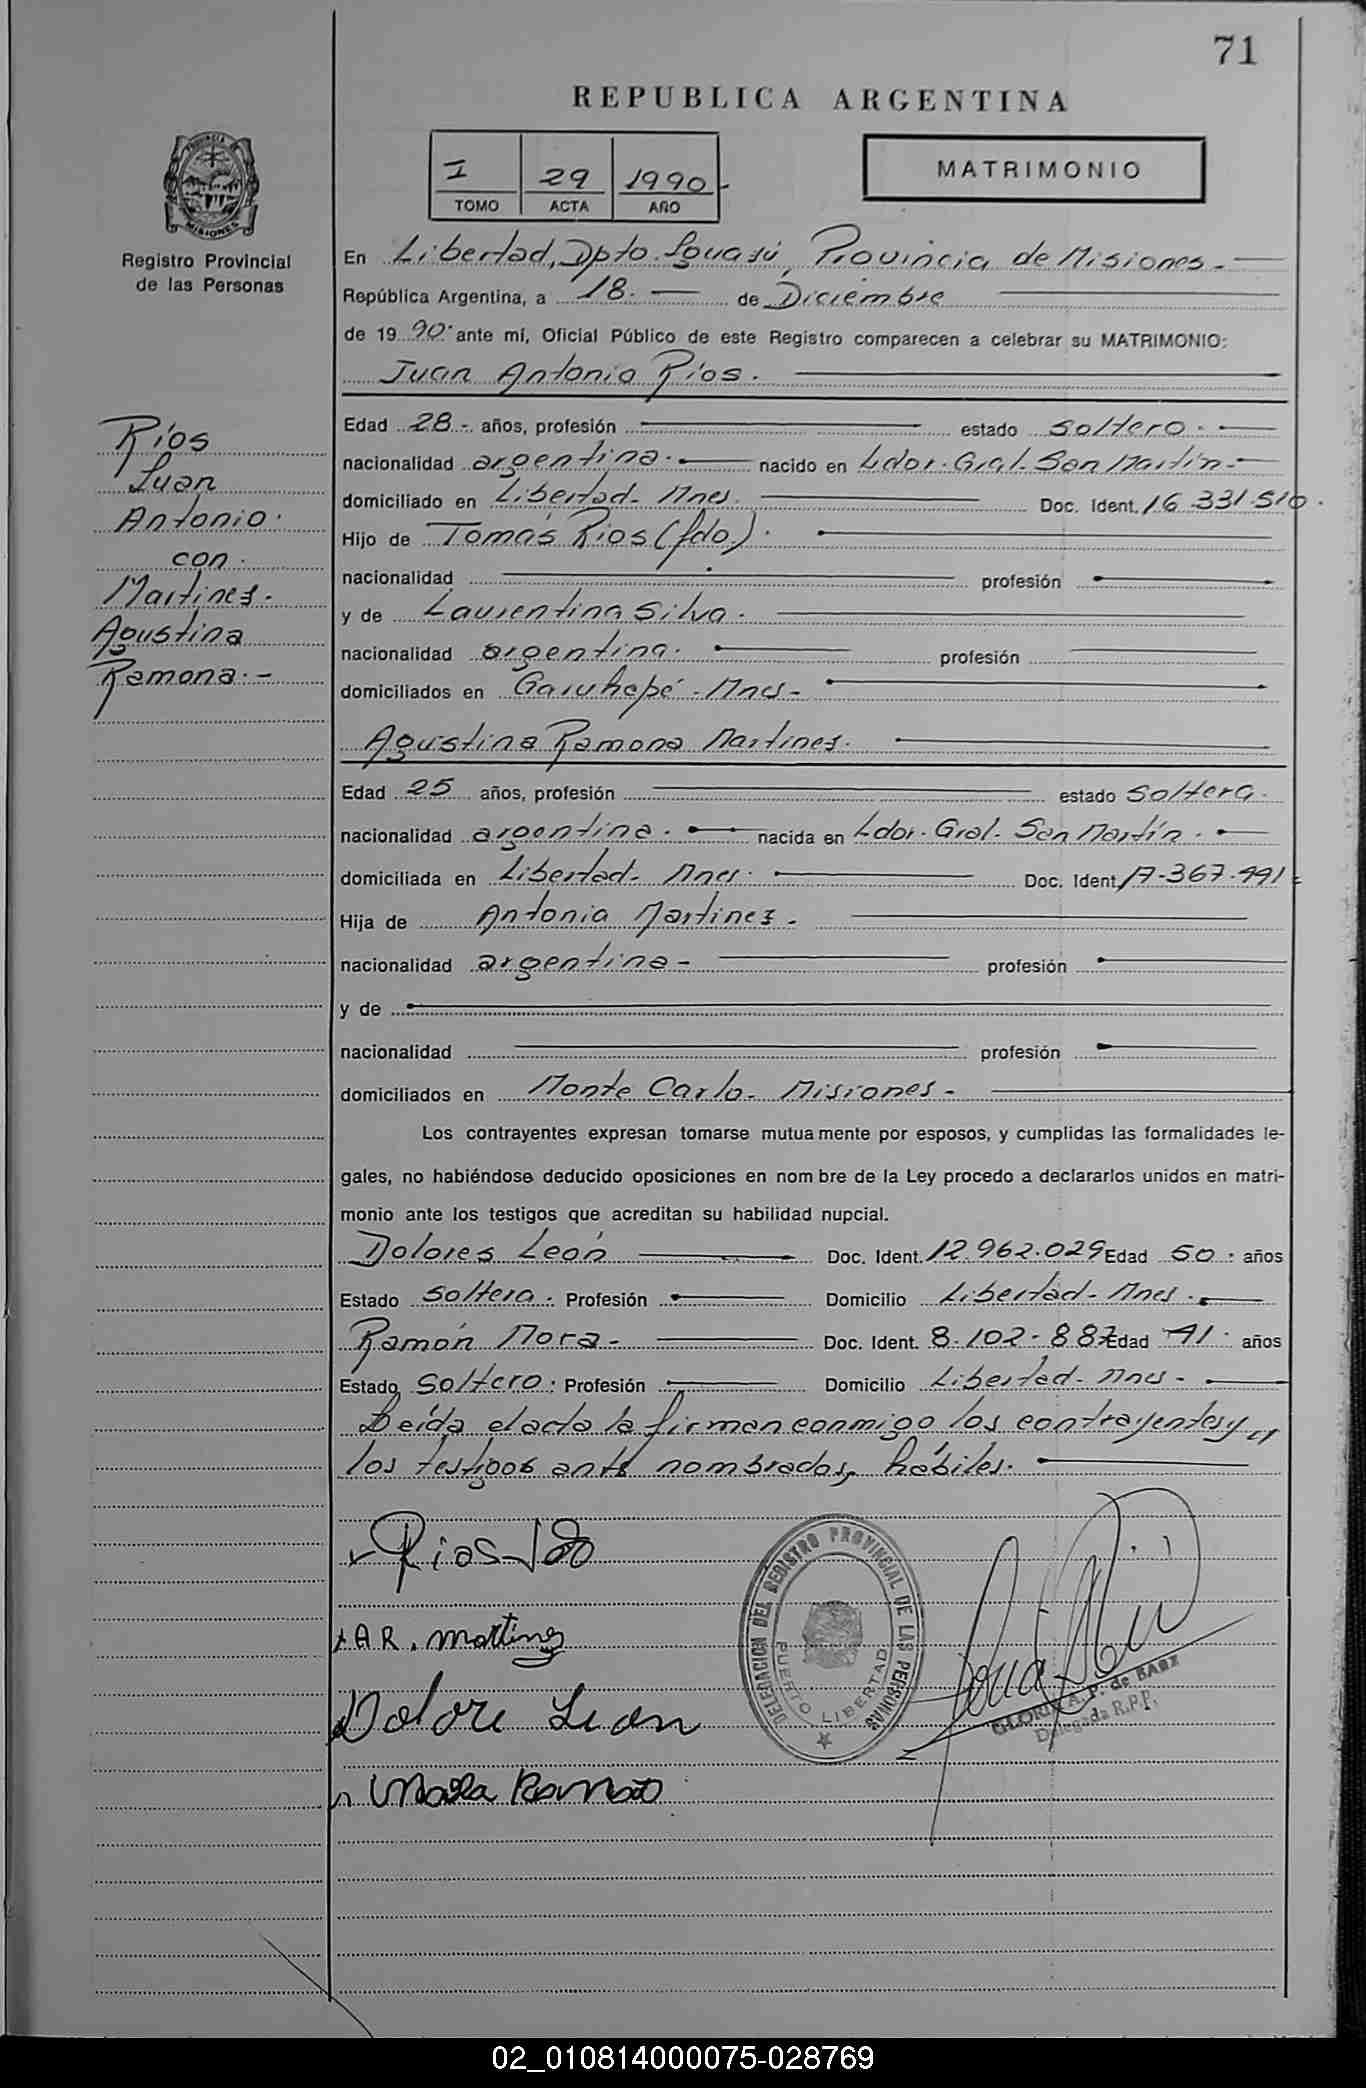 71
REPUBLICA ARGENTINA
I 29 1990
TOMO ACTA AÑO
MATRIMONIO
PROVINCIA DE
MISIONES
Registro Provincial
de las Personas
En Libertad, Dpto. Iguazú, Provincia de Misiones.-
República Argentina, a 18.- de Diciembre
de 19 90. ante mí, Oficial Público de este Registro comparecen a celebrar su MATRIMONIO:
Juan Antonio Ríos.
Ríos
Juan
Antonio.
con.
Martinez.
Agustina
Ramona.-
Edad 28.- años, profesión estado soltero.
nacionalidad argentina. nacido en Ldor. Gral. San Martín.
domiciliado en Libertad- Mnes. Doc. Ident. 16.331.510.
Hijo de Tomás Rios (fdo.).
nacionalidad profesión
y de Laurentina Silva.
nacionalidad argentina. profesión
domiciliados en Garuhapé-Mnes-
Agustina Ramona Martines.
Edad 25 años, profesión estado soltera.
nacionalidad argentina. nacida en Ldor. Gral. San Martín.
domiciliada en Libertad- Mnes. Doc. Ident. 17-367-991
Hija de Antonia Martinez.
nacionalidad argentina- profesión
y de
nacionalidad profesión
domiciliados en Monte Carlo- Misiones-
Los contrayentes expresan tomarse mutuamente por esposos, y cumplidas las formalidades le-
gales, no habiéndose deducido oposiciones en nombre de la Ley procedo a declararlos unidos en matri-
monio ante los testigos que acreditan su habilidad nupcial.
Dolores León Doc. Ident. 12.962.029 Edad 50. años
Estado soltera. Profesión Domicilio Libertad- Mnes.
Ramón Mora- Doc. Ident. 8.102.887 Edad 41. años
Estado soltero. Profesión Domicilio Libertad- Mnes-
Leída el acta la firman conmigo los contrayentes y
los testigos ante nombrados, hábiles.
Rios
A R. Martinez
Dolore Leon
Mora Ramon
DELEGACION DEL REGISTRO PROVINCIAL DE LAS PERSONAS
PUERTO LIBERTAD
GLORIA A. P. de BAEZ
Delegada R.P.P.
02_010814000075-028769